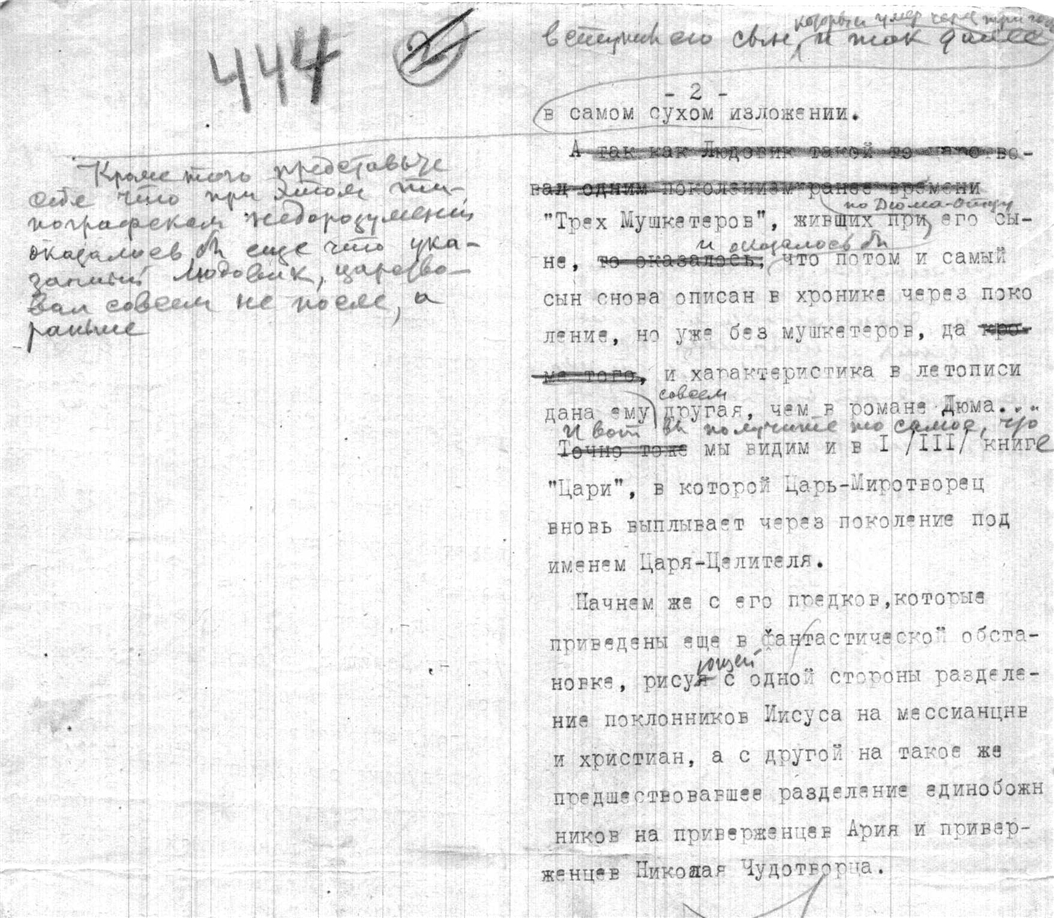 444
2
который умер через три года
вступил его сын, и так далее
- 2 -
в самом сухом изложении.
Кроме того представьте
себе что при этом ти-
пографском недоразумении
оказалось бы еще что ука-
занный Людовик, царство-
вал совсем не после, а
раньше
А так как Людовик такой то царство-
вал одним поколением ранее времени
по Дюма-отцу
"Трех Мушкетеров", живших при его сы-
и оказалось бы
не, то оказалось, что потом и самый
сын снова описан в хронике через поко
ление, но уже без мушкетеров, да кро-
ме того, и характеристика в летописи
совсем
дана ему другая, чем в романе Дюма...
И вот вы получите то самое, что
Точно тоже мы видим и в I /III/ книге
"Цари", в которой Царь-Миротворец
вновь выплывает через поколение под
именем Царя-Целителя.
Начнем же с его предков,которые
приведены еще в фантастической обста-
ющей
новке, рисуя с одной стороны разделе-
ние поклонников Иисуса на мессианцнв
и христиан, а с другой на такое же
предшествовавшее разделение единобожн
ников на приверженцев Ария и привер-
женцев Николая Чудотворца.